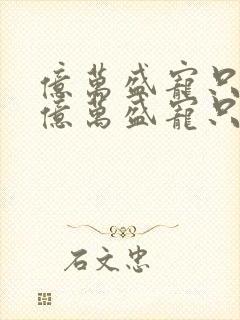 億萬盛寵只
億萬盛寵只
石文忠